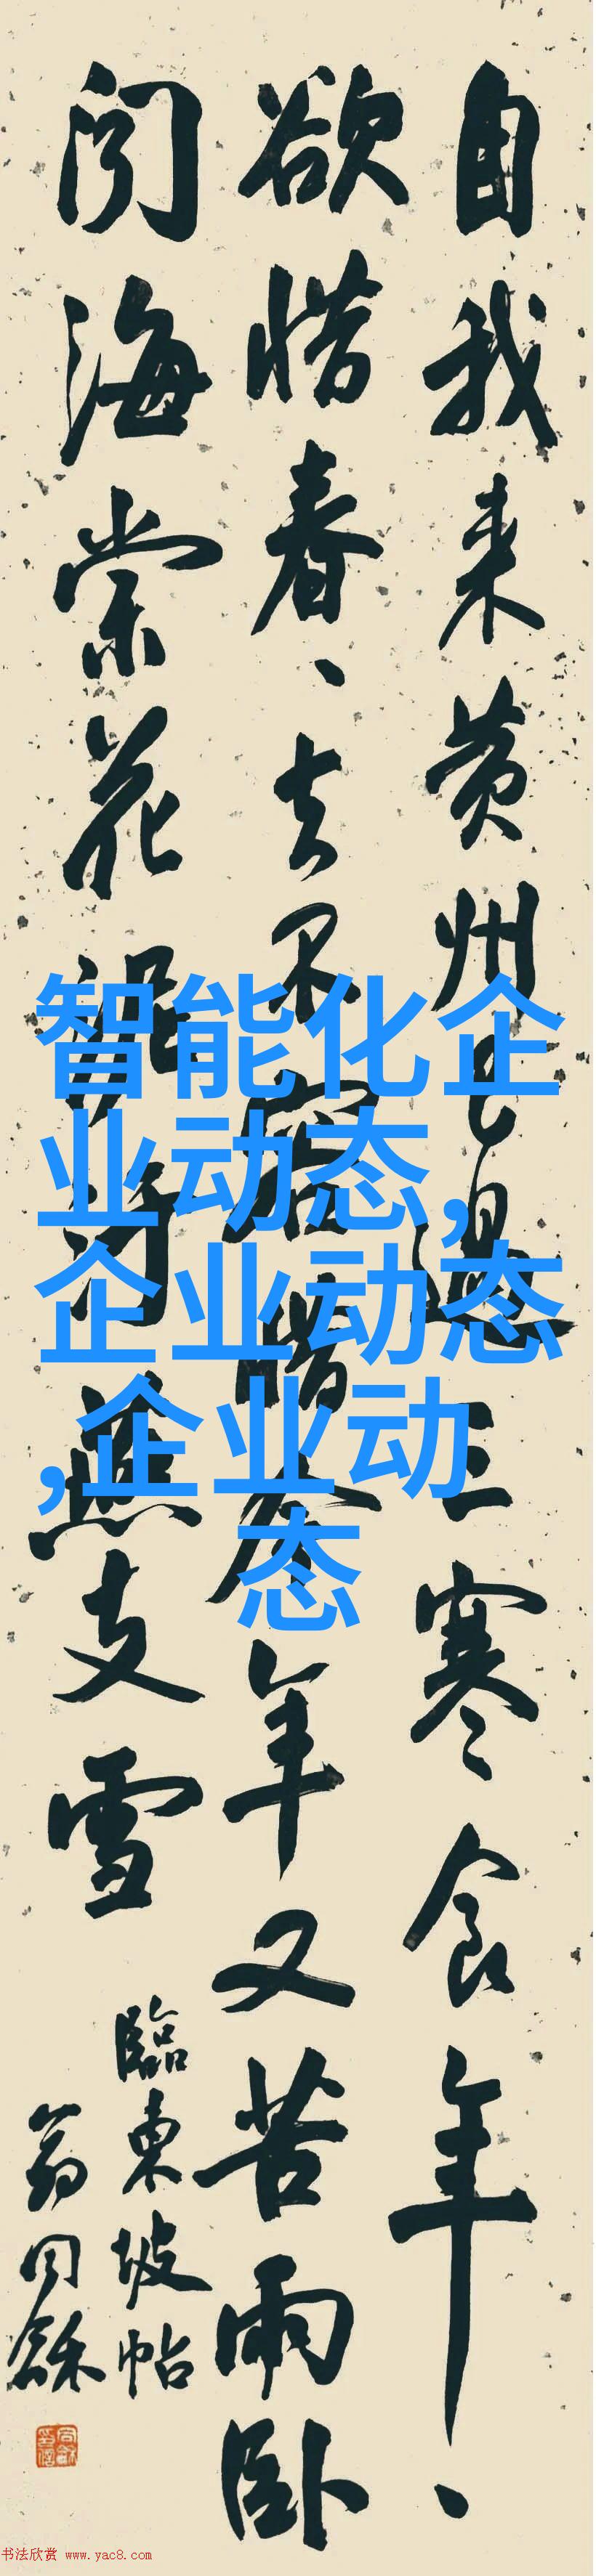 自我来黄州已過三寒食年、
欲惜春、去不容惜今年又苦雨卧
闻海棠花泥汙燕支雪
臨東坡帖
翁同龢
智能化企
业动态,
企业动态
,企业动
态
书法欣赏 www.yac8.com